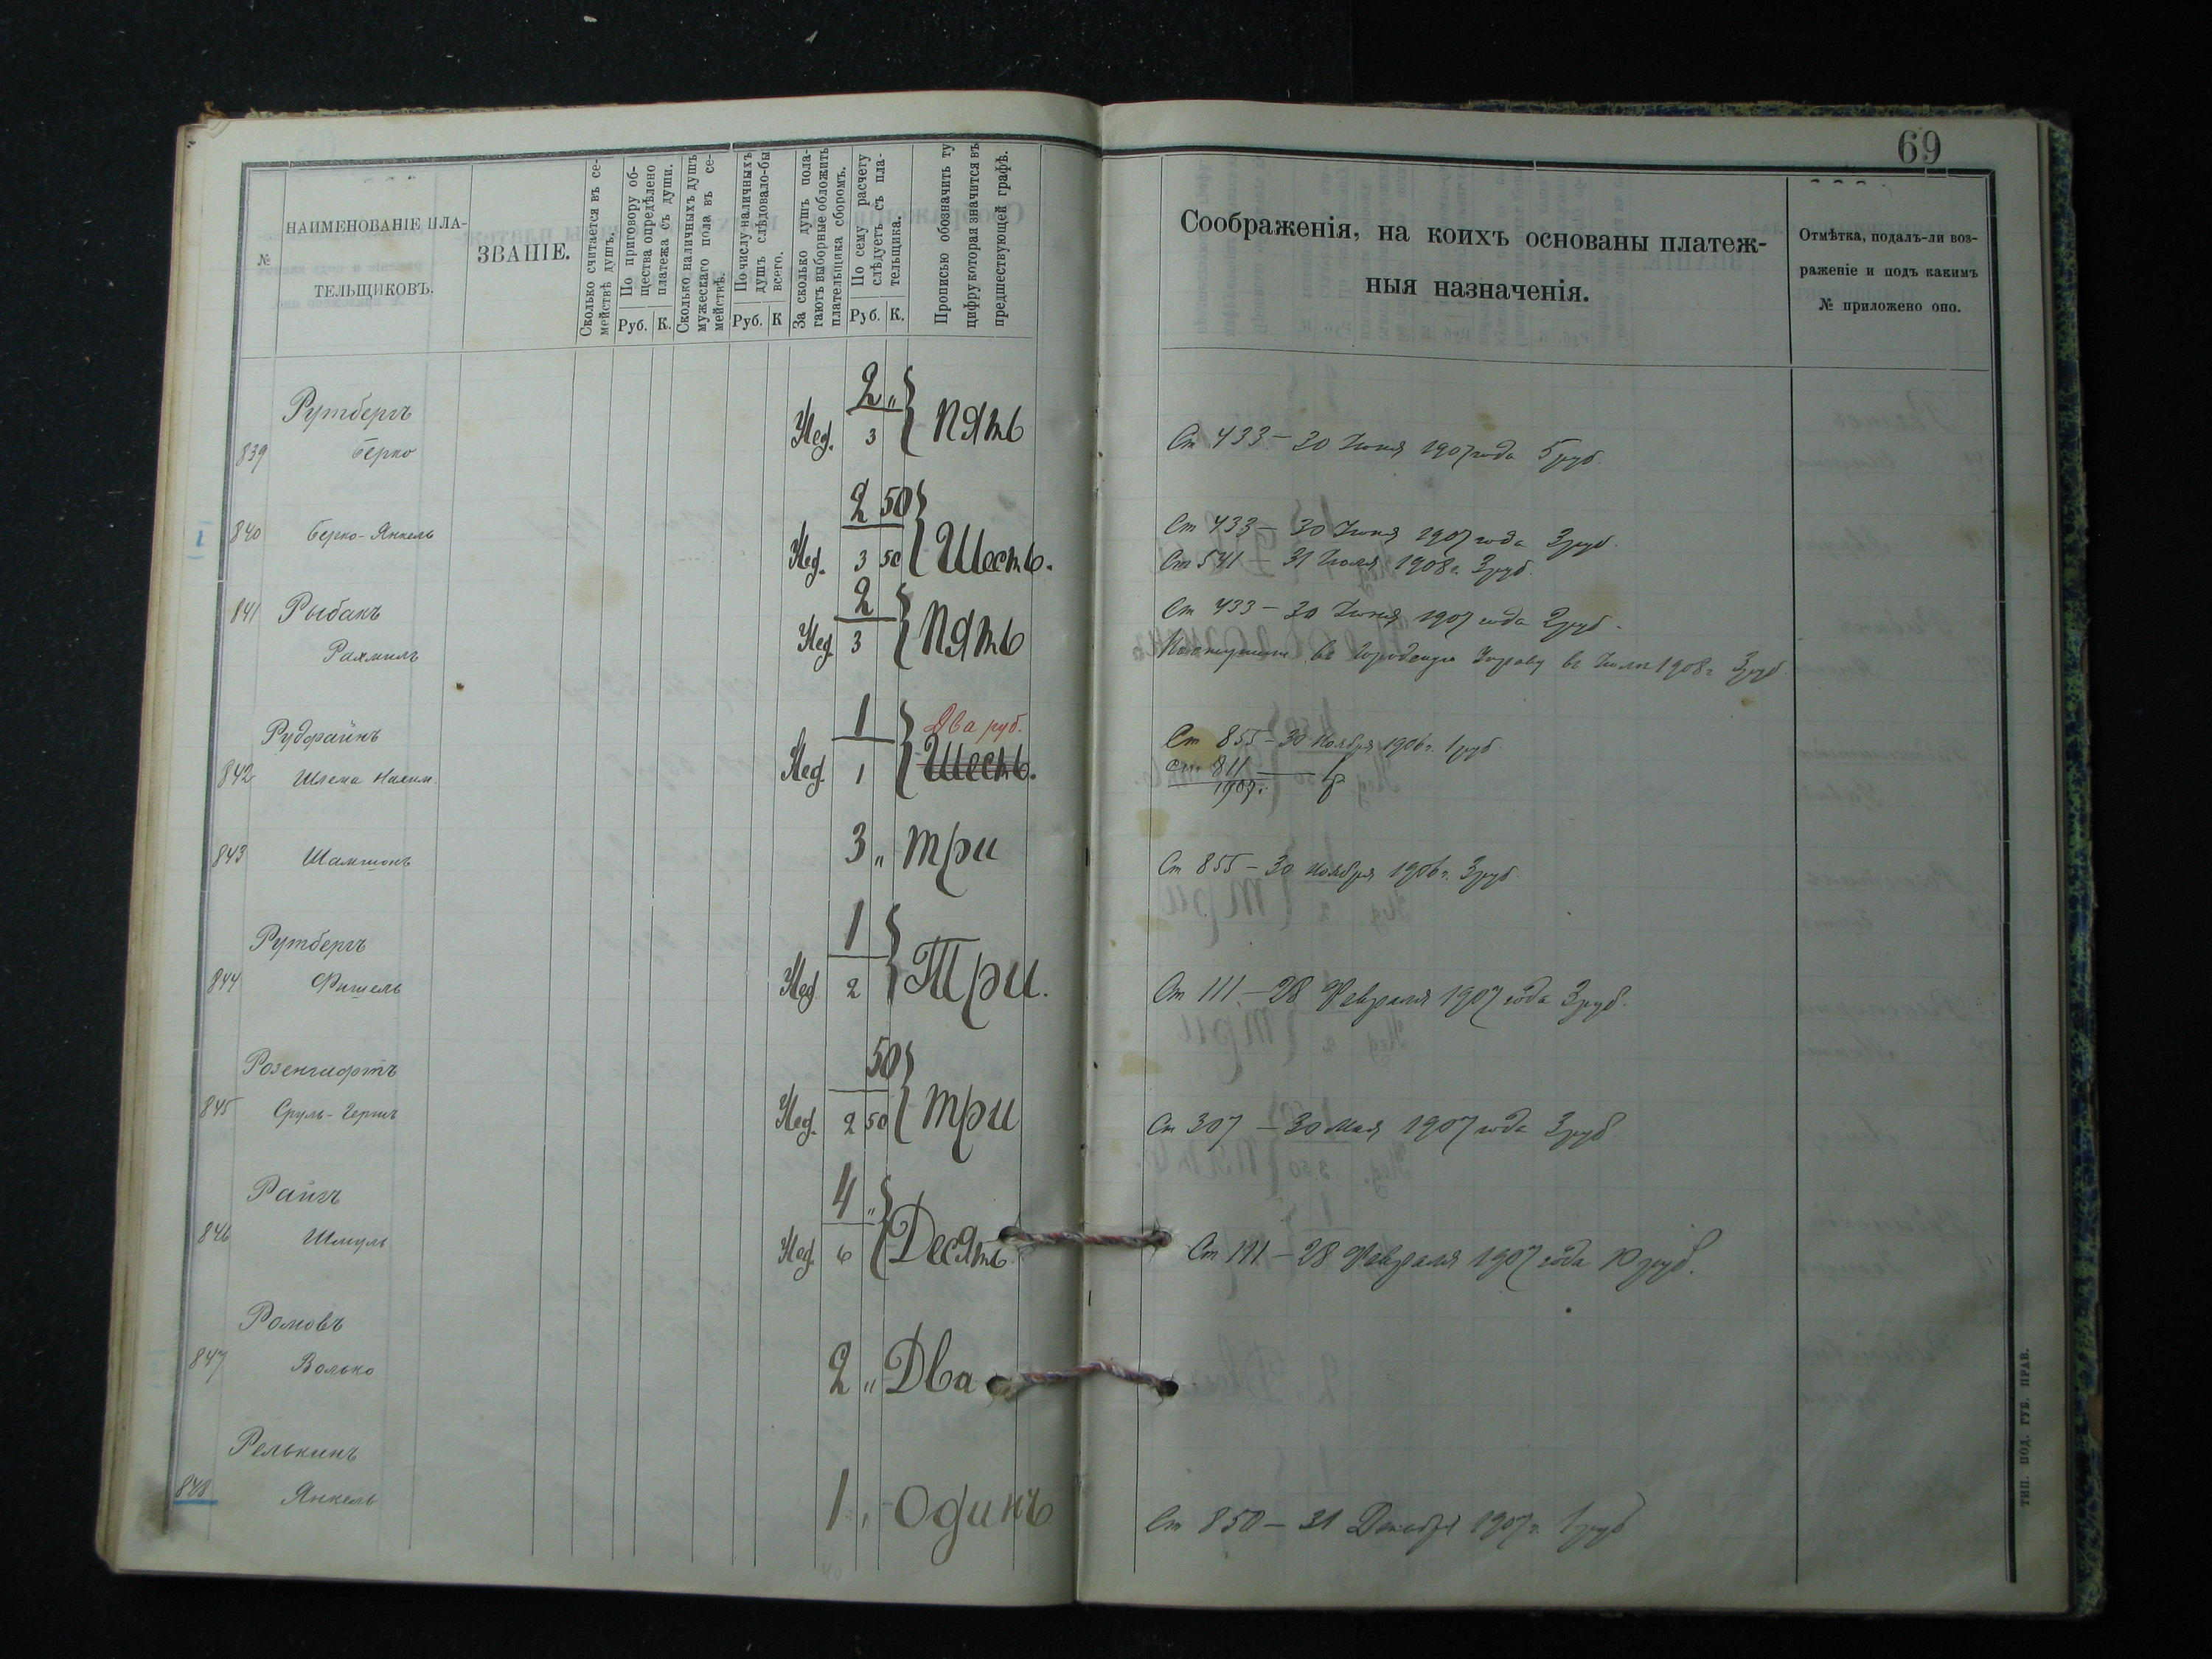 69
№
НАИМЕНОВАНІЕ ПЛА-
ТЕЛЬЩИКОВЪ.
ЗВАНІЕ.
Сколько считается въ се-
мействѣ душъ.
По приговору об-
щества опредѣлено
платежа съ души.
Руб. К.
Сколько наличныхъ душъ
мужескаго пола въ се-
мействѣ.
По числу наличныхъ
душъ слѣдовало-бы
всего.
Руб. К
За сколько душъ пола-
гаютъ выборные обложить
плательщика сборомъ.
По сему расчету
слѣдуетъ съ пла-
тельщика.
Руб. К.
Прописью обозначить ту
цифру которая значится въ
предшествующей графѣ.
Соображенія, на коихъ основаны платеж-
ныя назначенія.
Отмѣтка, подалъ-ли воз-
раженіе и подъ какимъ
№ приложено оно.
Рутбергъ 2 "
839 Берко Нед. 3 Пять Ст 433 – 30 Іюня 1907 года 5 руб.
2 50
840 Берко-Янкель Нед. 3 50 Шесть. Ст 433 – 30 Іюня 1907 года 3 руб.
Ст 541 – 31 Іюля 1908 г. 3 руб.
841 Рыбакъ 2 Ст 433 – 30 Іюня 1907 года 2 руб.
Рахмиль Нед. 3 Пять въ Городскую Управу въ 1908 г 3 руб
Рудфайнъ 1 Два руб. Ст 855 – 30 Ноября 1906 г. 1 руб.
842 Шлема Нахим. Нед. 1 Шесть. ст. 811 — 1 р
1907 г.
843 Шамшонъ 3 " Три Ст 855 – 30 Ноября 1906 г. 3 руб.
Рутбергъ 1
844 Фишель Нед 2 Три. Ст 111 – 28 Февраля 1907 года 3 руб.
Розенгифтъ 50
845 Сруль-Гершъ Нед. 2 50 Три Ст 307 – 30 Мая 1907 года 3 руб
Райгъ 4 "
846 Шмуль Нед. 6 Десять. Ст 111 – 28 Февраля 1907 года 10 руб.
Ромовъ
847 Волько 2 " Два
Релькинъ
848 Янкель 1 " Одинъ Ст 850 – 31 Декабря 1907 г. 1 руб
ТИП. ПОД. ГУБ. ПРАВ.